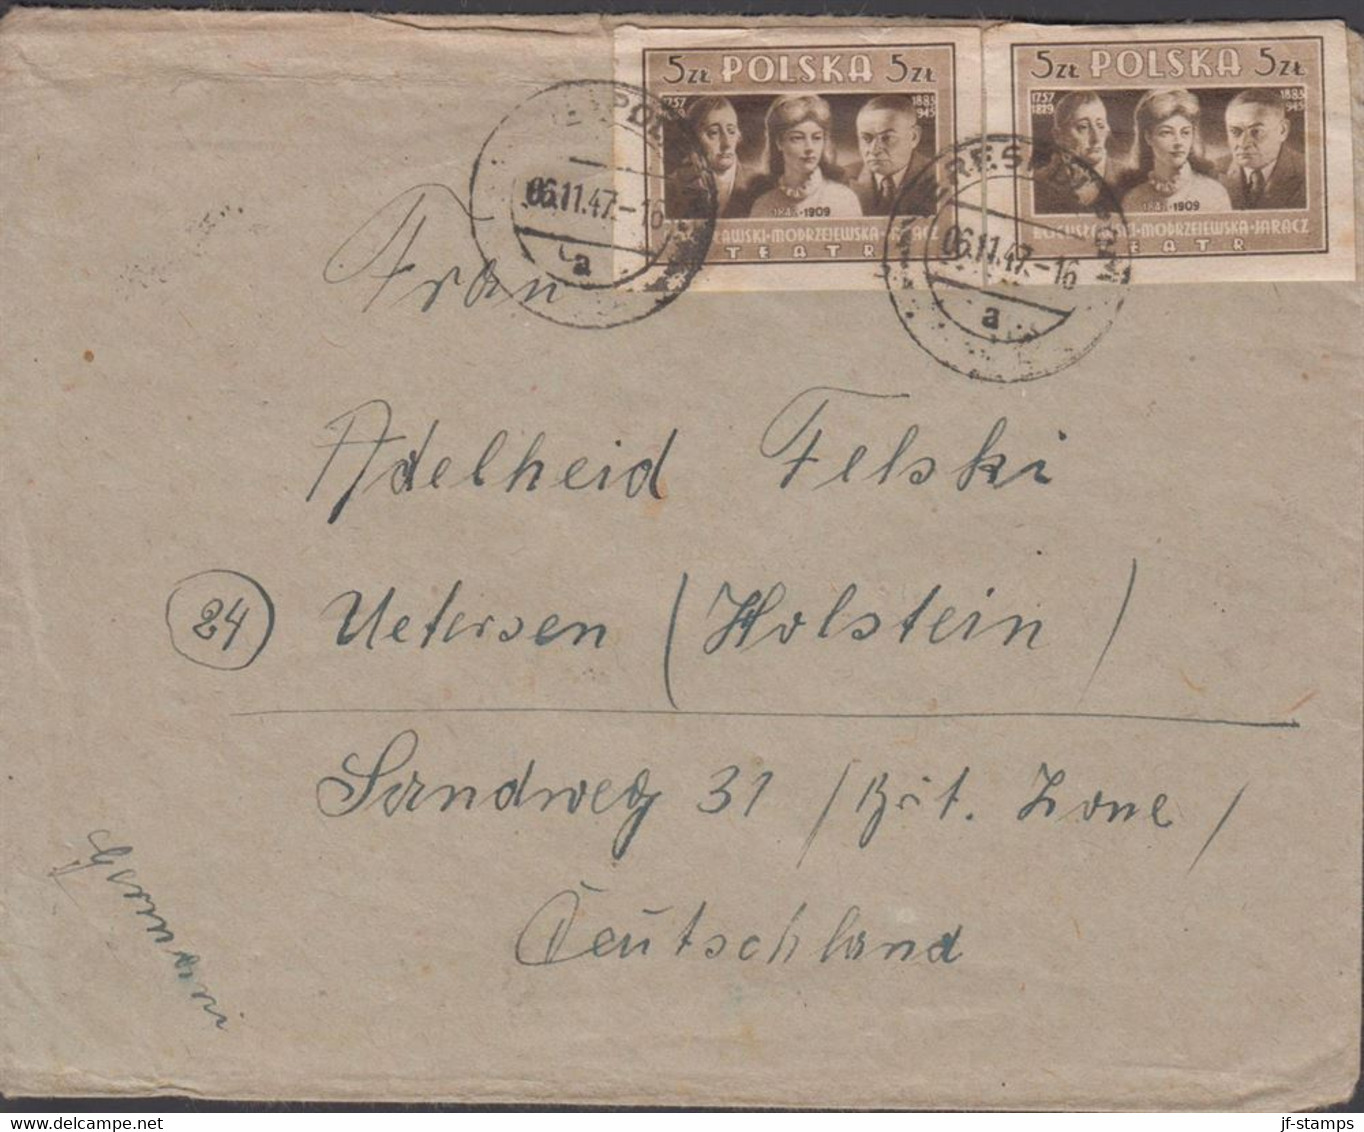 5 ZŁ POLSKA 5 ZŁ
1757
1885
1945
1909
MODRZEJEWSKA·JARACZ
TEATR
5 ZŁ POLSKA 5 ZŁ
1757
1829
1885
1945
1909
MODRZEJEWSKA·JARACZ
06.11.47.-16
a
06.11.47.-16
a
Frau
Adelheid Felski
24
Uetersen (Holstein)
Sandweg 31 / Brit. Zone /
Deutschland
Germani
www.delcampe.net
jf-stamps